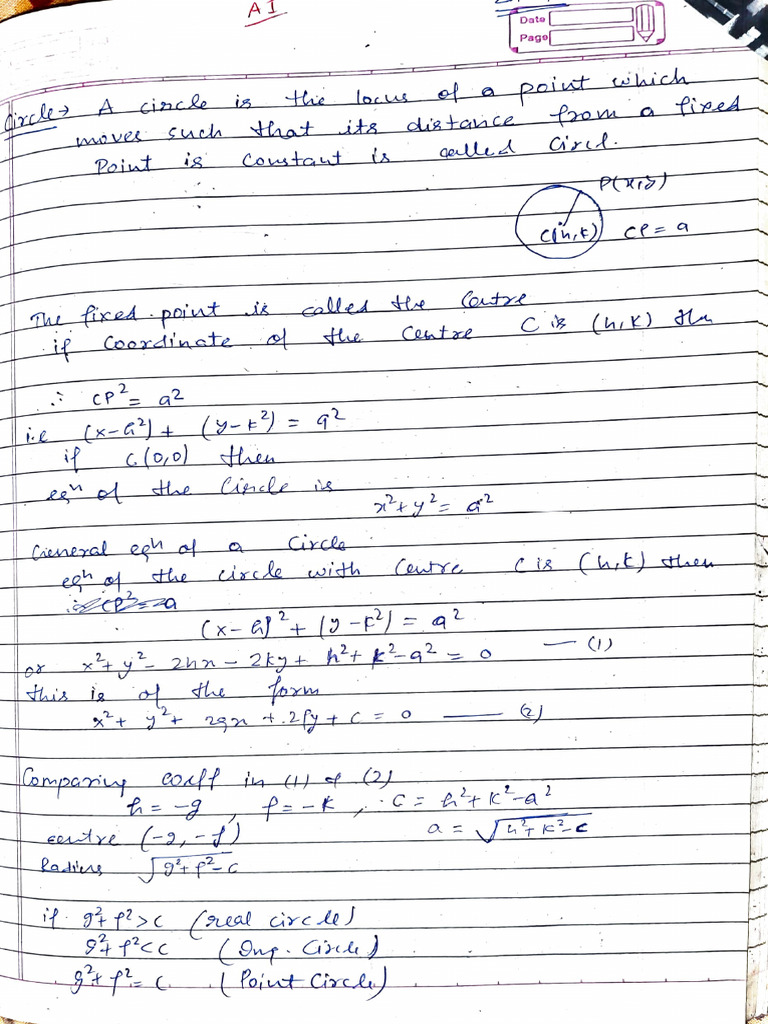 AI
Date
Page
Circle → A circle is the locus of a point which
moves such that its distance from a fixed
Point is constant is called Circl.
P(x,y)
C(h,k) CP = a
The fixed point is called the Centre
if Coordinate of the Centre C is (h,k) then
∴ CP² = a²
i.e (x-h²) + (y-k²) = a²
if C(0,0) then
eqⁿ of the Circle is
x²+y² = a²
General eqⁿ of a Circle
eqⁿ of the circle with Centre C is (h,k) then
(x-h)² + (y-k²) = a²
or x²+y²- 2hx - 2ky + h²+ k²-a² = 0 — (1)
this is of the form
x²+ y²+ 2gx + 2fy + c = 0 —— (2)
Comparing coeff in (1) & (2)
h = -g , f = -k , c = h²+k²-a²
centre (-g, -f) a = √h²+k²-c
Radius √g²+f²-c
if g²+f²>c (real circle)
g²+f²<c (Img. Circle)
g²+f²=c (Point Circle)